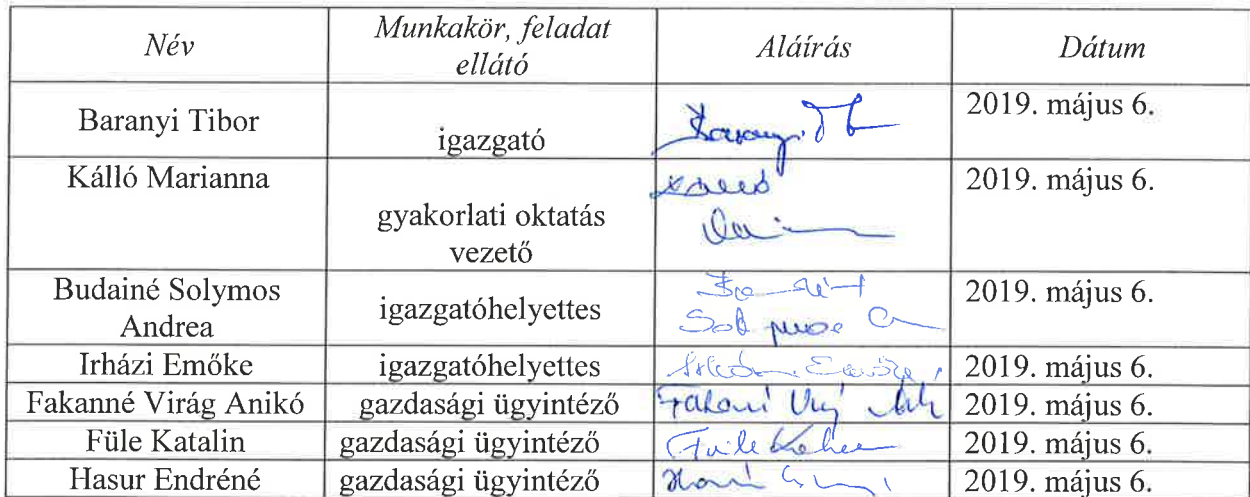 Név Munkakör, feladat ellátó Aláírás Dátum
Baranyi Tibor igazgató Baranyi T 2019. május 6.
Kálló Marianna gyakorlati oktatás vezető Kálló 2019. május 6.
Budainé Solymos Andrea igazgatóhelyettes 2019. május 6.
Irházi Emőke igazgatóhelyettes 2019. május 6.
Fakanné Virág Anikó gazdasági ügyintéző 2019. május 6.
Füle Katalin gazdasági ügyintéző Füle Katalin 2019. május 6.
Hasur Endréné gazdasági ügyintéző 2019. május 6.